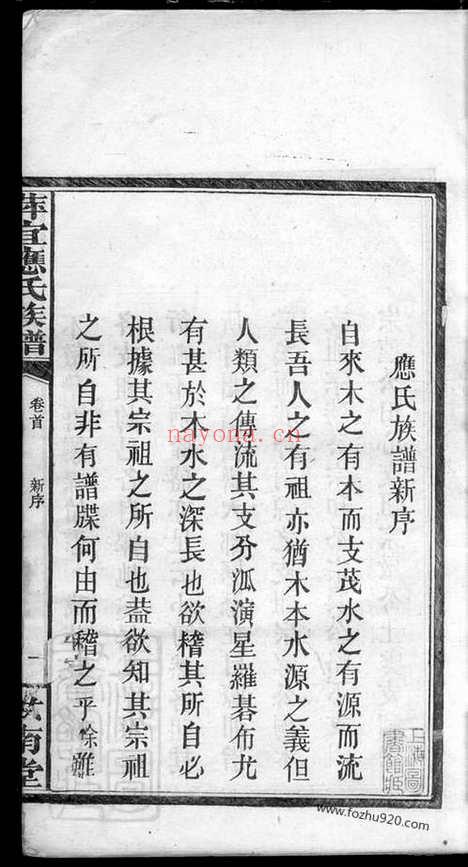 應氏族譜新序
自來木之有本而支茂水之有源而流
長吾人之有祖亦猶木本水源之義但
人類之傳流其支分派演星羅碁布尤
有甚於木水之深長也欲稽其所自必
根據其宗祖之所自也葢欲知其宗祖
之所自非有譜牒何由而稽之乎餘雖
萍宜應氏族譜
卷首
新序
一
南堂
上海圖書館藏
nayona.cn
www.fozhu920.com